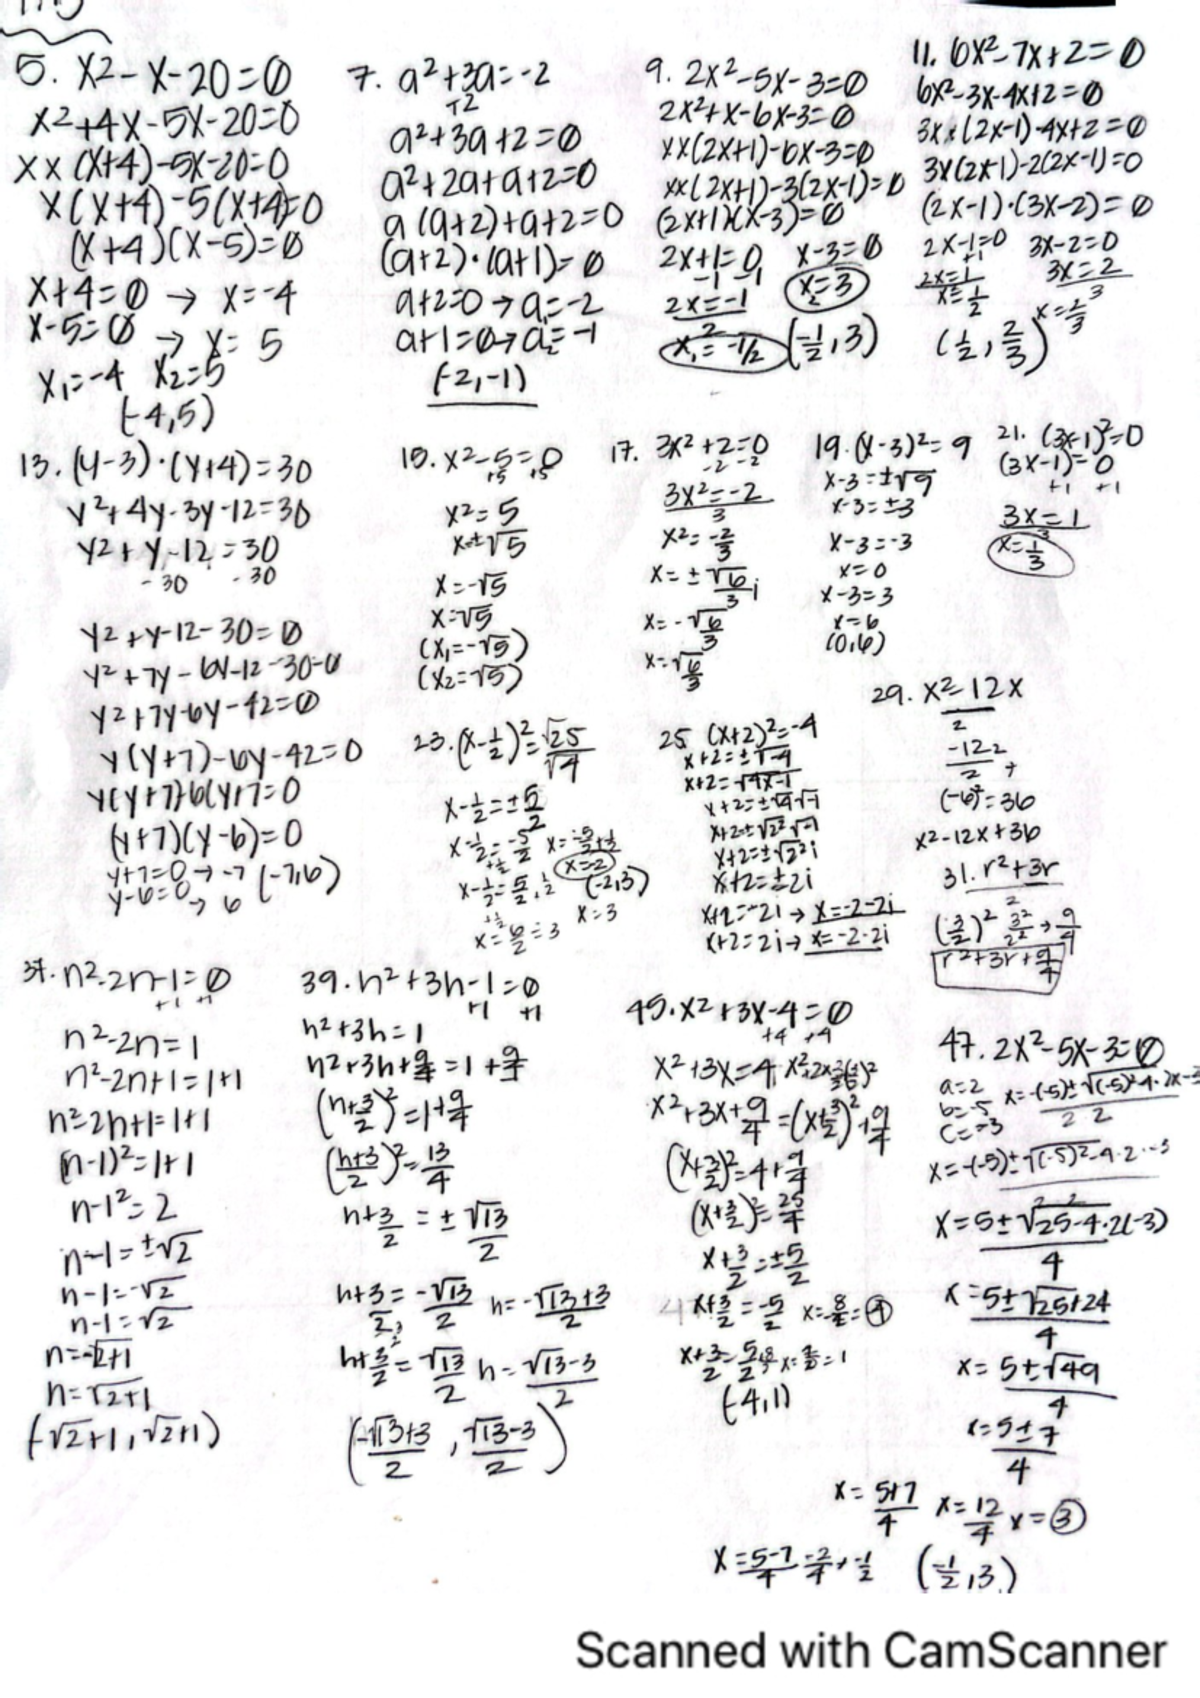 5. x²-x-20=0
x²+4x-5x-20=0
x×(x+4)-5x-20=0
x(x+4)-5(x+4)=0
(x+4)(x-5)=0
x+4=0 → x=-4
x-5=0 → x=5
x₁=-4 x₂=5
(-4,5)
7. a²+3a=-2
+2
a²+3a+2=0
a²+2a+a+2=0
a(a+2)+a+2=0
(a+2)·(a+1)=0
a+2=0→a₁=-2
a+1=0→a₂=-1
(-2,-1)
9. 2x²-5x-3=0
2x²+x-6x-3=0
x×(2x+1)-6x-3=0
x×(2x+1)-3(2x-1)=0
(2x+1)(x-3)=0
2x+1=0 x-3=0
-1 -1 x₂=3
2x=-1
2
x₁=-1/2 (-1/2,3)
11. 6x²-7x+2=0
6x²-3x-4x+2=0
3x×(2x-1)-4x+2=0
3x(2x-1)-2(2x-1)=0
(2x-1)·(3x-2)=0
2x-1=0 3x-2=0
+1
2x=1 3x=2
3
x=1/2 x=2/3
(1/2, 2/3)
13. (y-3)·(y+4)=30
y²+4y-3y-12=30
y²+y-12=30
-30 -30
y²+y-12-30=0
y²+7y-6y-12-30=0
y²+7y-6y-42=0
y(y+7)-6y-42=0
y(y+7)-6(y+7=0
(y+7)(y-6)=0
y+7=0→-7 (-7,6)
y-6=0→6
15. x²-5=0
+5 +5
x²=5
x=±√5
x=-√5
x=√5
(x₁=-√5)
(x₂=√5)
17. 3x²+2=0
-2 -2
3x²=-2
3
x²=-2/3
x=±√6/3 i
x=-√6/3
x=√6/3
19. (x-3)²=9
x-3=±√9
x-3=±3
x-3=-3
x=0
x-3=3
x=6
(0,6)
21. (3x-1)²=0
(3x-1)=0
+1 +1
3x=1
3
x=1/3
23. (x-1/2)²=√25/√4
x-1/2=±5/2
x-1/2=-5/2 x=-5/2+1/2
x=-2
x-1/2=5/2+1/2 (-2,3)
x=6/2=3 x=3
25 (x+2)²=-4
x+2=±√-4
x+2=√4x-1
x+2=±√4√-1
x+2=±√2²√-1
x+2=±√2²i
x+2=±2i
x+2=-2i→x=-2-2i
x+2=2i→x=-2-2i
29. x²-12x
2
(-6)²=36
x²-12x+36
31. r²+3r
2
(3/2)² 3²/2²→9/4
r²+3r+9/4
37. n²-2n-1=0
+1 +1
n²-2n=1
n²-2n+1=1+1
n²-2n+1=1+1
(n-1)²=1+1
n-1²=2
n-1=±√2
n-1=-√2
n-1=√2
n=-√2+1
n=√2+1
(-√2+1,√2+1)
39. n²+3n-1=0
+1 +1
n²+3n=1
n²+3n+9/4=1+9/4
(n+3/2)²=1+9/4
(n+3/2)²=13/4
n+3/2=±√13/2
n+3/2=-√13/2 n=-√13+3/2
n+3/2=√13/2 n=√13-3/2
(-√13+3/2, √13-3/2)
45. x²+3x-4=0
+4 +4
x²+3x=4
x²+3x+9/4=(x+3/2)²+9/4
(x+3/2)²=4+9/4
(x+3/2)²=25/4
x+3/2=±5/2
x+3/2=-5/2 x=-8/2=-4
x+3/2=5/2 x=2/2=1
(-4,1)
47. 2x²-5x-3=0
a=2
b=-5
c=-3
x=-(-5)±√(-5)²-4·2x-3
2 2
x=-(-5)±√(-5)²-4·2·-3
2 2
x=5±√25-4·2(-3)
4
x=5±√25+24
4
x=5±√49
4
x=5±7
4
x=5+7/4 x=12/4 x=3
x=5-7/4 -2/4 → -1/2 (-1/2,3)
Scanned with CamScanner